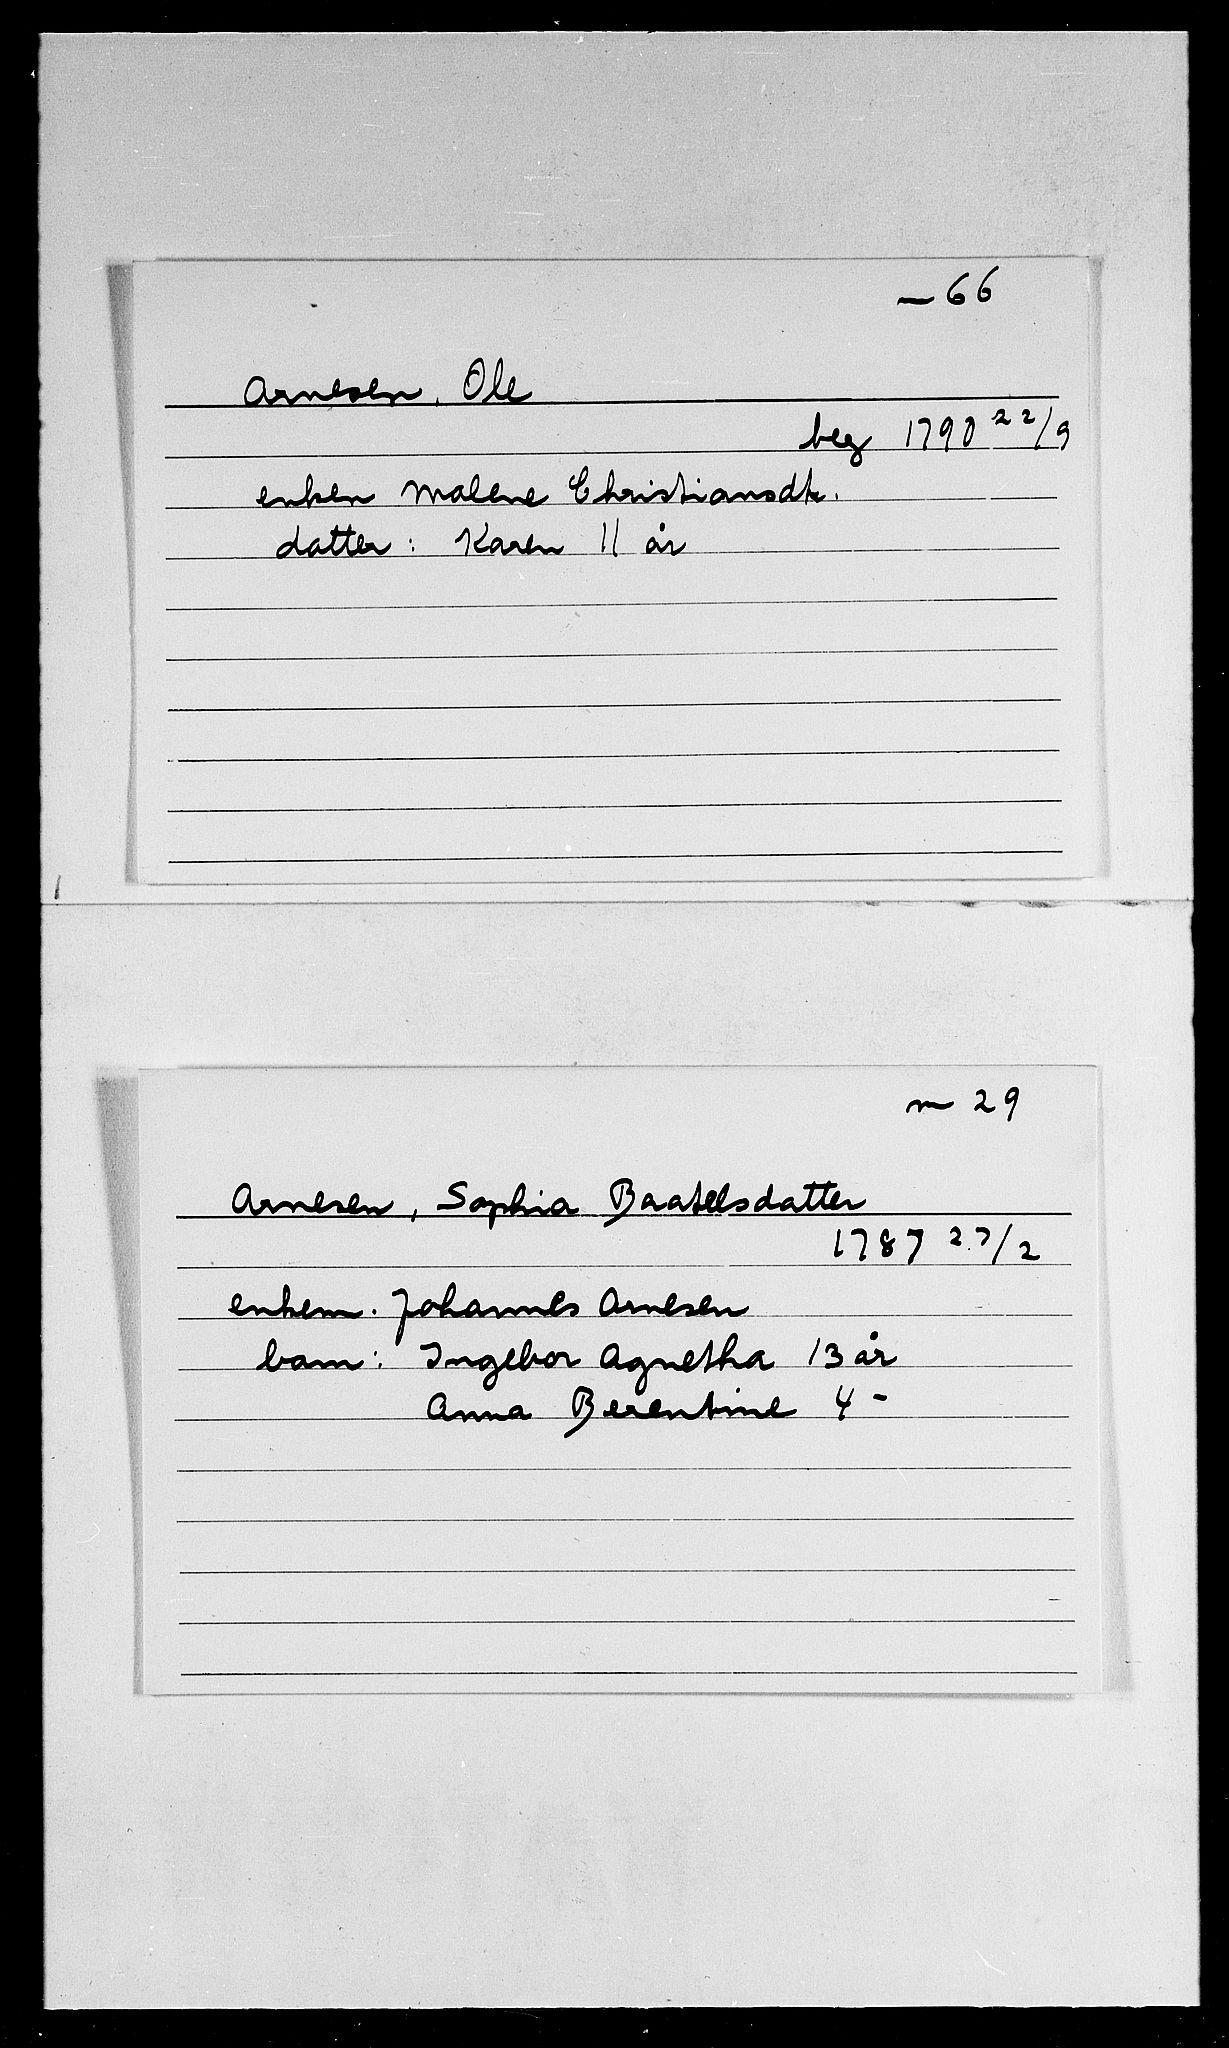 — 66
Arnesen, Ole
beg 1790 22/9
enken Malene Christiansdtr.
datter: Karen 11 år
m 29
Arnesen, Sophia Baatelsdatter
1787 27/2
enkem. Johannes Arnesen
barn: Ingebor Agnetha 13 år
Anna Berentine 4 -